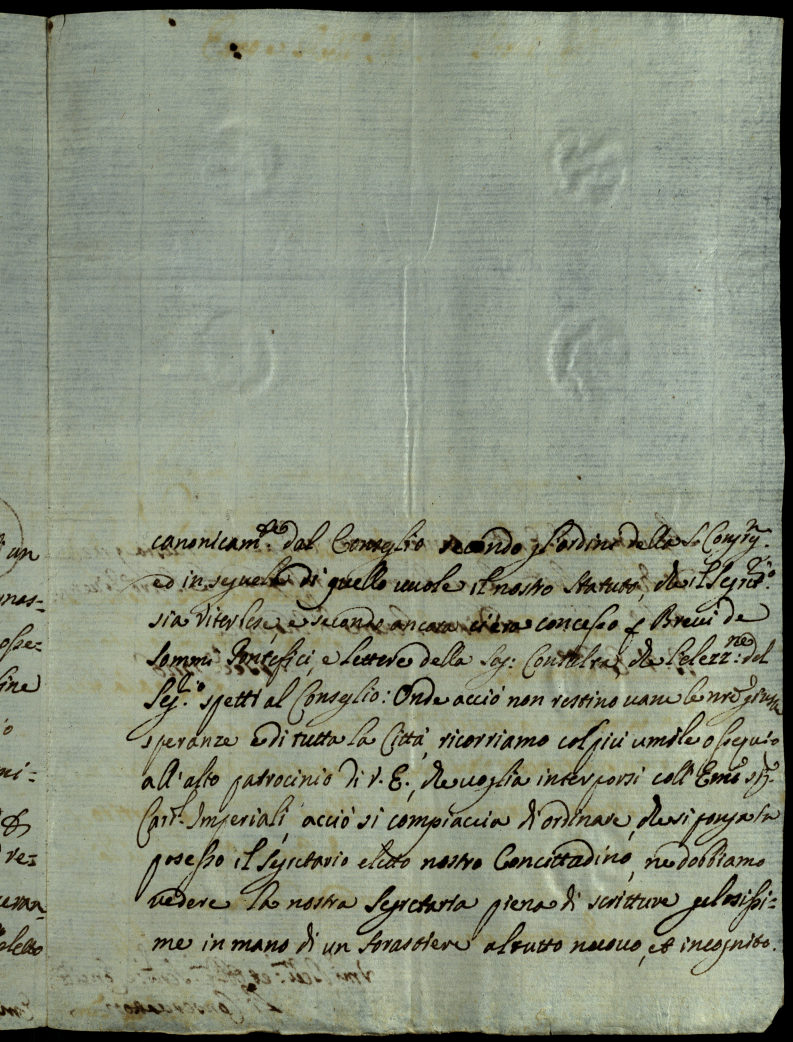 un
mos=
osse=
fine
o
mi=
&
re=
eletto
canonicam.te dal Conseglio secondo gl'ordini della S. Congr.ne
ed in sequela di quello vuole il nostro Statuto, che il Segret.o
sia Viterbese, e secondo ancora ci era concesso p Brevi de
Sommi Pontefici, e lettere della Sag: Consulta, che l'elezz.ne del
Seg.rio spetti al Conseglio: Onde acciò non restino vane le nre giuste
speranze e di tutta la Città, ricorriamo col più umile ossequio
all'alto patrocinio di V. E., che voglia interporsi coll'Emo Sig.r
Card. Imperiali, acciò si compiaccia di ordinare, che si ponga in
posesso il Segretario eletto nostro Concittadino, ne dobbiamo
vedere la nostra Segretaria piena di scritture gelosissi=
me in mano di un forastiere al tutto nuovo, et incognito.